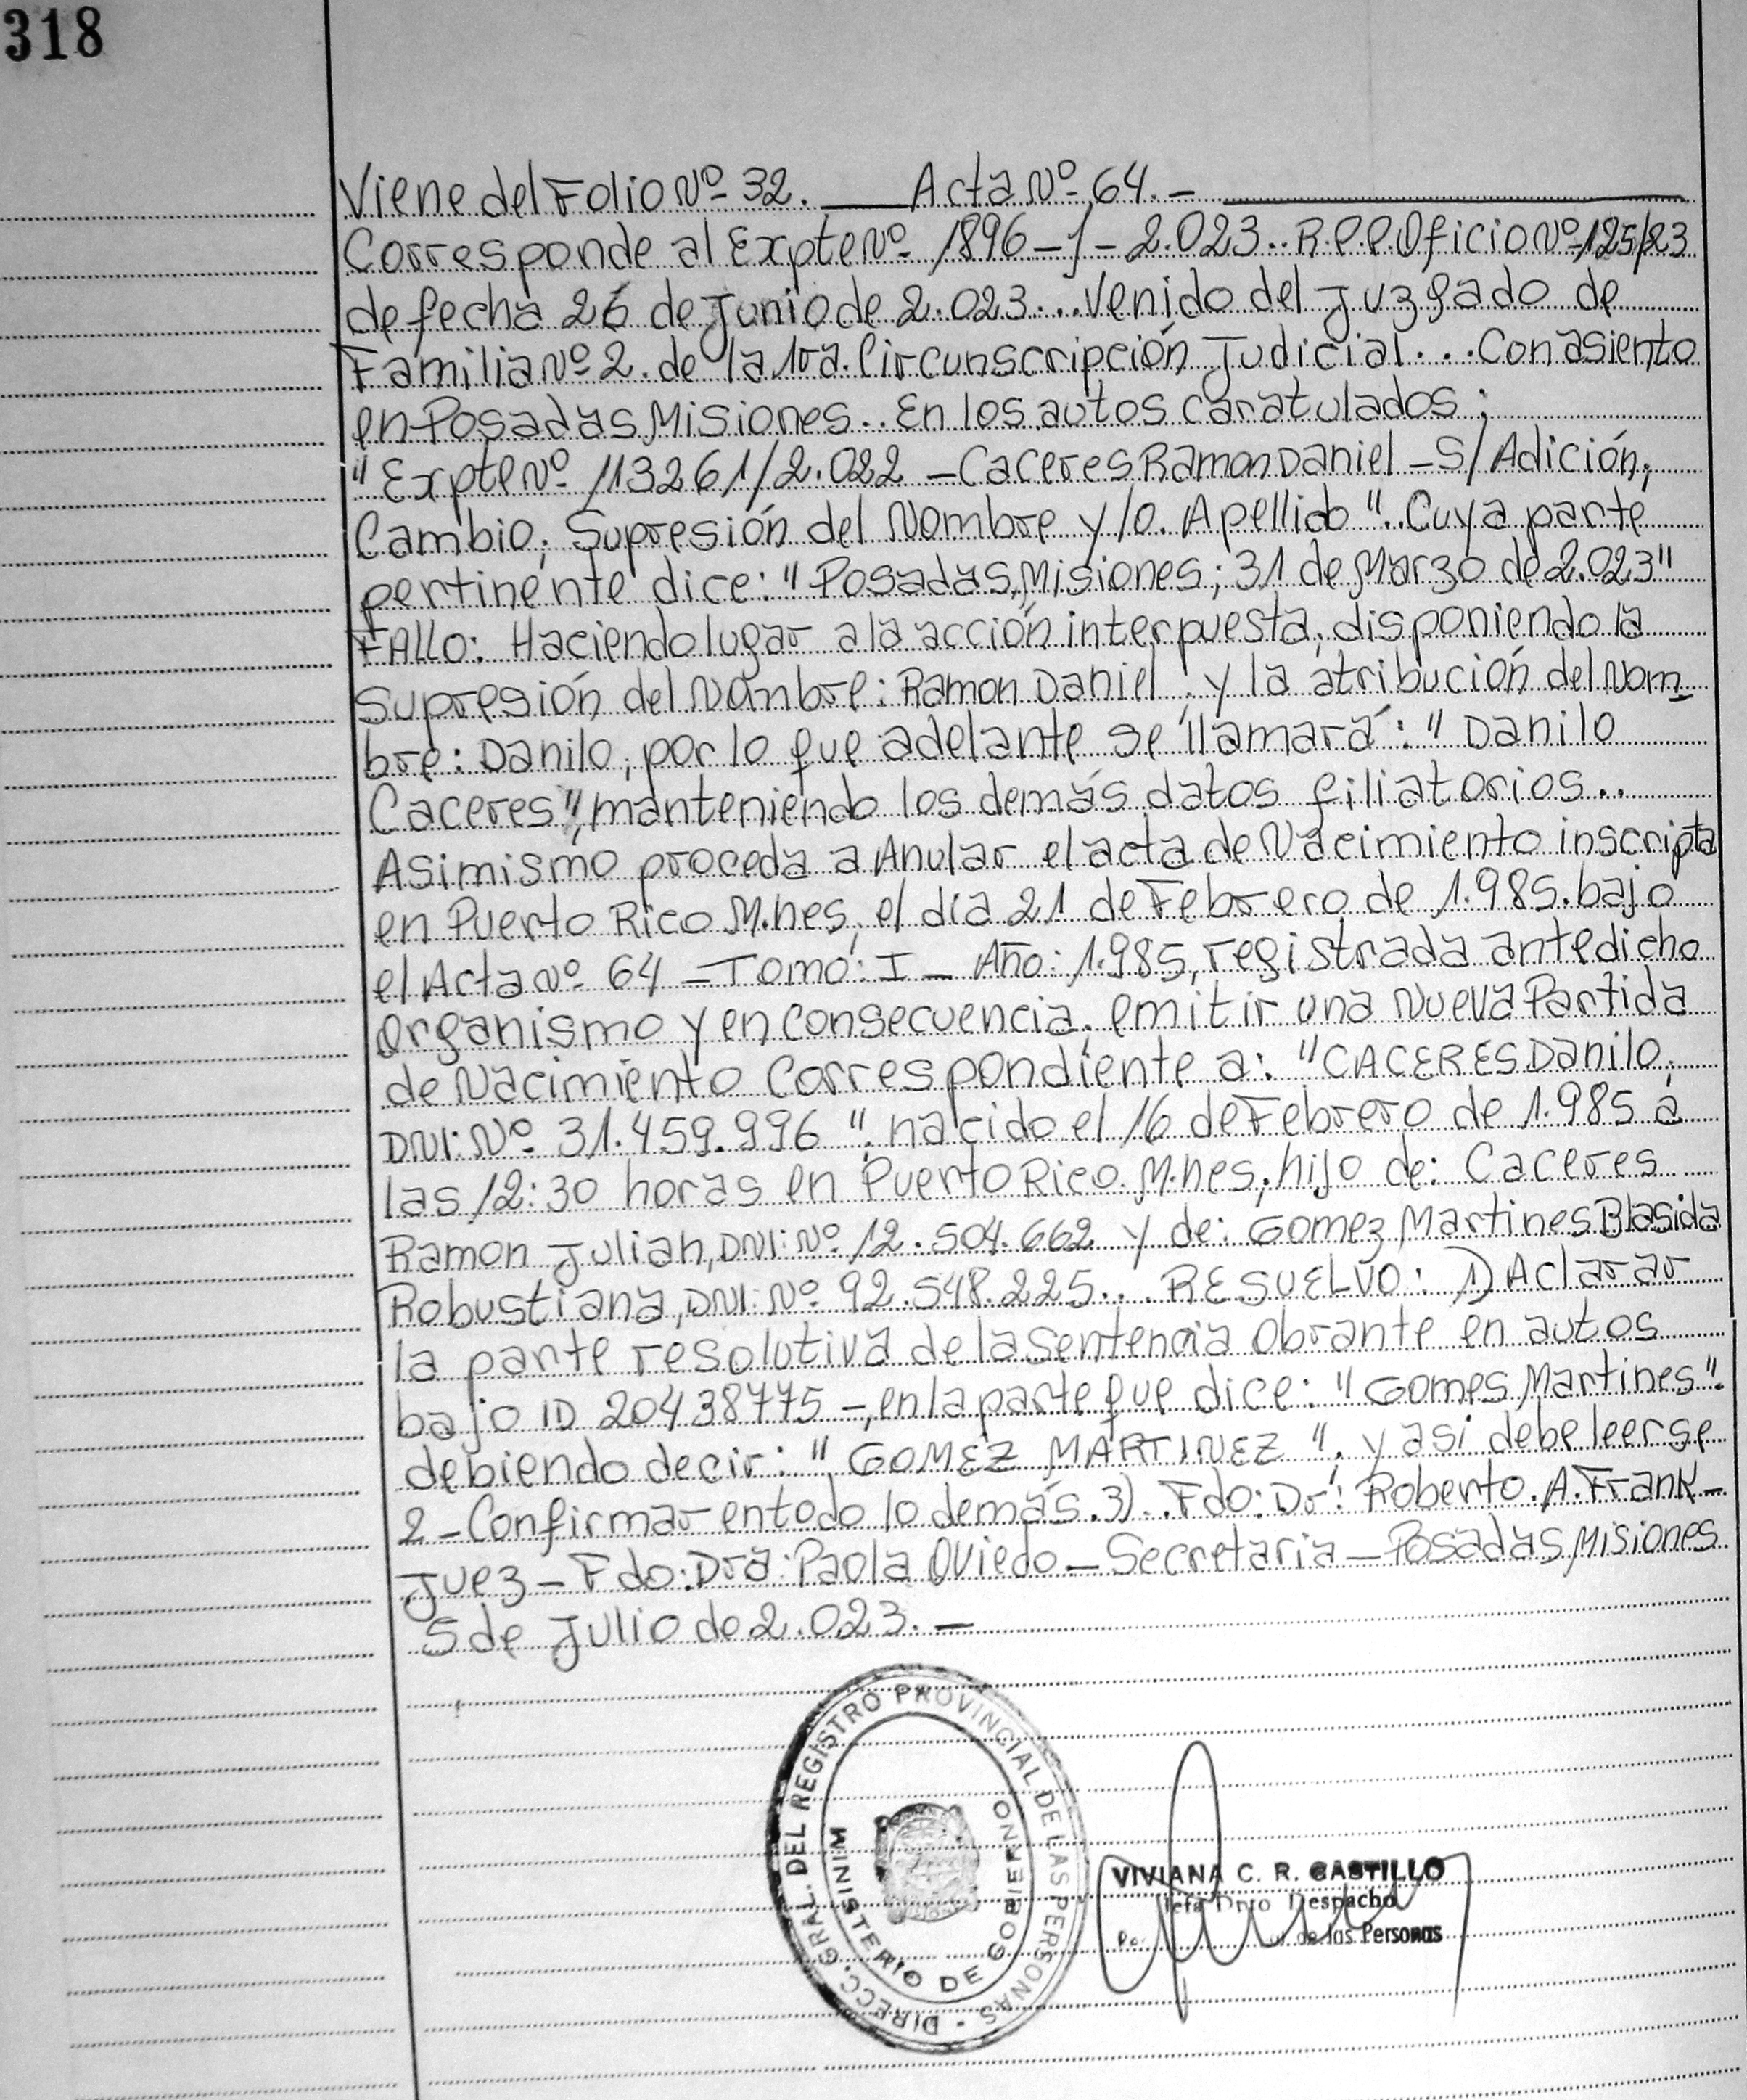 318
Viene del Folio Nº 32. ___ Acta Nº 64. - ___
Corresponde al Expte Nº 1896 - J - 2.023.. R.P.P. Oficio Nº 125/23
de fecha 26 de Junio de 2.023... Venido del Juzgado de
Familia Nº 2. de la 1ra. Circunscripción Judicial... Con asiento
en Posadas Misiones.. En los autos caratulados;
"Expte Nº 113261/2.022 - Caceres Ramon Daniel - S/ Adición;
Cambio; Supresión del Nombre y/o. Apellido".. Cuya parte
pertinente dice: "Posadas, Misiones; 31 de Marzo de 2.023"
FALLO: Haciendo lugar a la acción interpuesta, disponiendo la
Supresión del Nombre: Ramon Daniel, y la atribución del Nom-
bre: Danilo, por lo que adelante se llamará: "Danilo
Caceres", manteniendo los demás datos filiatorios..
Asimismo proceda a Anular el acta de Nacimiento inscripta
en Puerto Rico M.nes, el día 21 de Febrero de 1.985. bajo
el Acta Nº 64 - Tomo: I - Año: 1.985, registrada antedicho
Organismo y en consecuencia, emitir una Nueva Partida
de Nacimiento Correspondiente a: "CACERES Danilo;
DNI: Nº 31.459.996", nacido el 16 de Febrero de 1.985 a
las 12:30 horas en Puerto Rico. M.nes, hijo de: Caceres
Ramon Julian, DNI: Nº 12.504.662 y de: Gomez Martines Blasida
Robustiana, DNI: Nº 92.548.225... RESUELVO: 1) Aclarar
la parte resolutiva de la Sentencia Obrante en autos
bajo ID 20438775 -, en la parte que dice: "Gomes Martines".
debiendo decir: "GOMEZ MARTINEZ". y asi debe leerse
2 - Confirmar en todo lo demás. 3).. Fdo: Dr: Roberto. A. Frank -
Juez - Fdo: Dra: Paola Oviedo - Secretaria - Posadas Misiones
5 de Julio de 2.023. -
DIRECC. GRAL. DEL REGISTRO PROVINCIAL DE LAS PERSONAS
MINISTERIO DE GOBIERNO
VIVIANA C. R. CASTILLO
Jefa Dpto Despacho
de las Personas